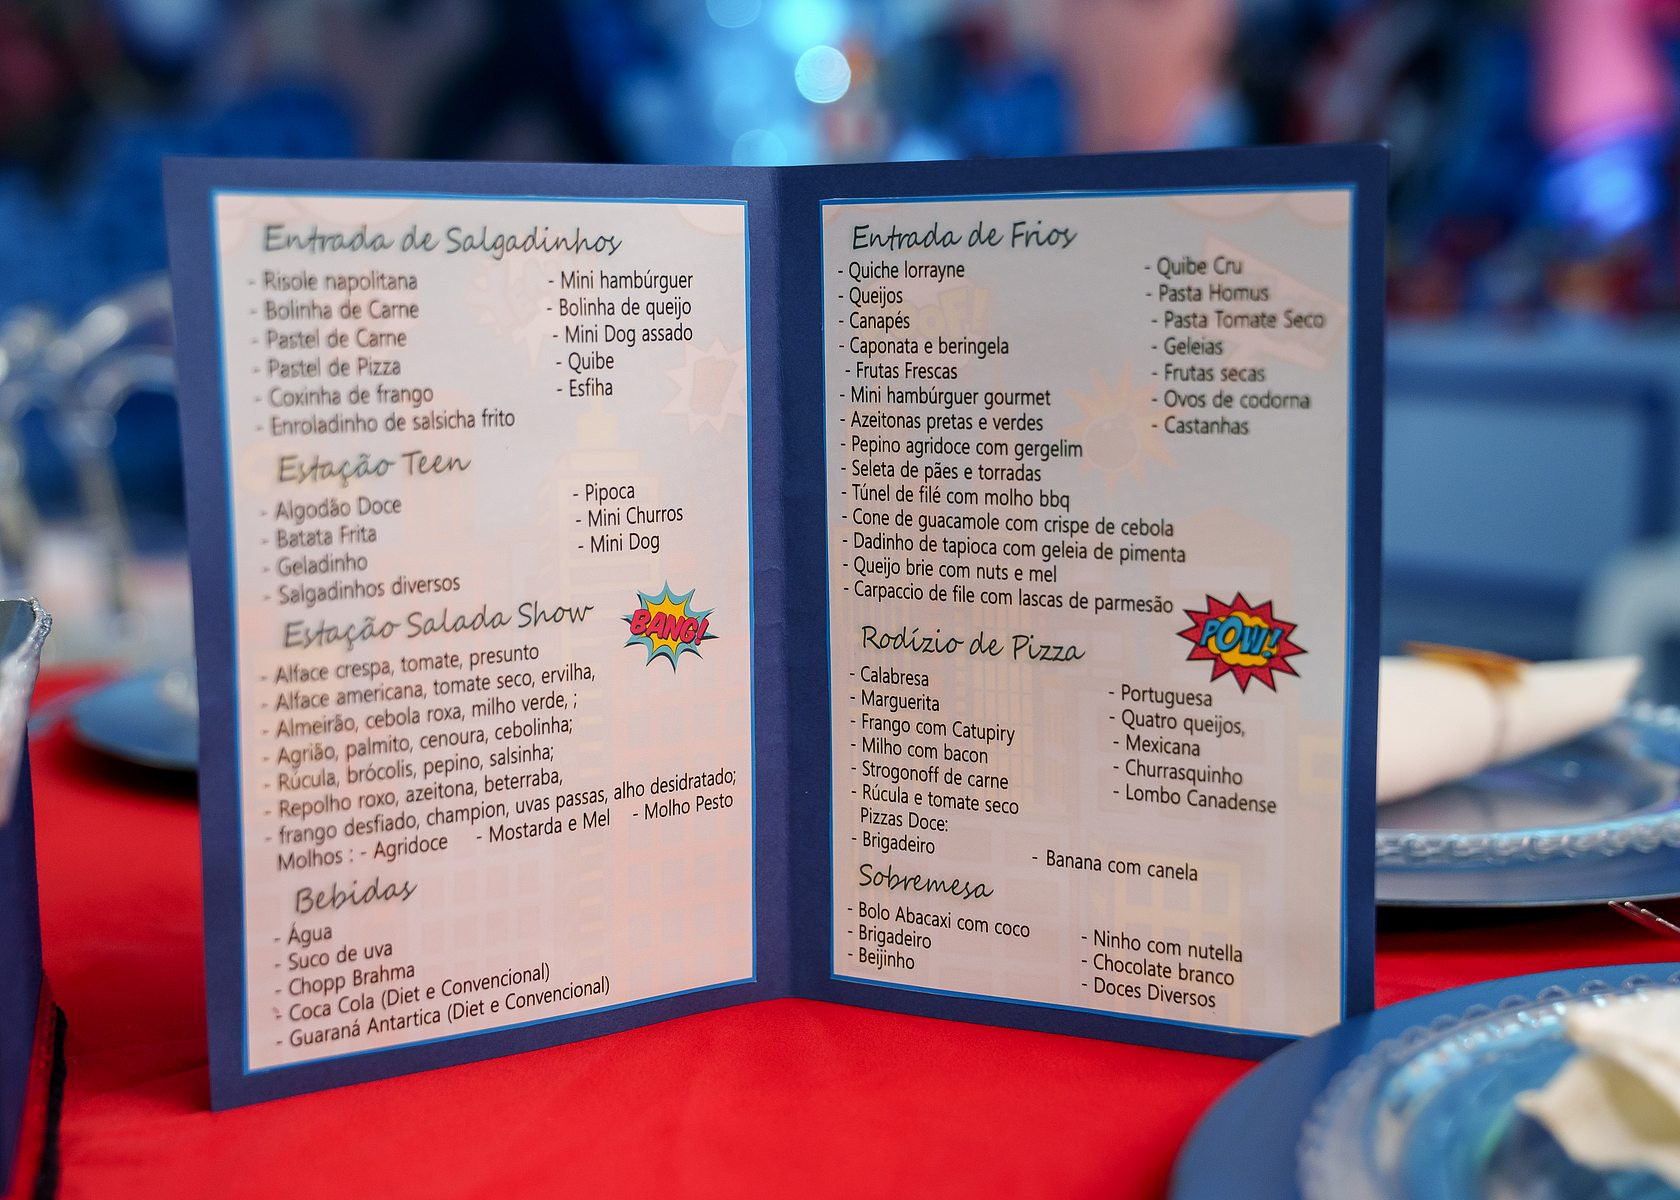 Entrada de Salgadinhos
- Risole napolitana
- Bolinha de Carne
- Pastel de Carne
- Pastel de Pizza
- Coxinha de frango
- Enroladinho de salsicha frito
- Mini hambúrguer
- Bolinha de queijo
- Mini Dog assado
- Quibe
- Esfiha
Estação Teen
- Algodão Doce
- Batata Frita
- Geladinho
- Salgadinhos diversos
- Pipoca
- Mini Churros
- Mini Dog
Estação Salada Show
BANG!
- Alface crespa, tomate, presunto
- Alface americana, tomate seco, ervilha,
- Almeirão, cebola roxa, milho verde, ;
- Agrião, palmito, cenoura, cebolinha;
- Rúcula, brócolis, pepino, salsinha;
- Repolho roxo, azeitona, beterraba,
- frango desfiado, champion, uvas passas, alho desidratado;
Molhos : - Agridoce - Mostarda e Mel - Molho Pesto
Bebidas
- Água
- Suco de uva
- Chopp Brahma
- Coca Cola (Diet e Convencional)
- Guaraná Antartica (Diet e Convencional)
Entrada de Frios
- Quiche lorrayne
- Queijos
- Canapés
- Caponata e beringela
- Frutas Frescas
- Mini hambúrguer gourmet
- Azeitonas pretas e verdes
- Pepino agridoce com gergelim
- Seleta de pães e torradas
- Túnel de filé com molho bbq
- Cone de guacamole com crispe de cebola
- Dadinho de tapioca com geleia de pimenta
- Queijo brie com nuts e mel
- Carpaccio de file com lascas de parmesão
- Quibe Cru
- Pasta Homus
- Pasta Tomate Seco
- Geleias
- Frutas secas
- Ovos de codorna
- Castanhas
POW!
Rodízio de Pizza
- Calabresa
- Marguerita
- Frango com Catupiry
- Milho com bacon
- Strogonoff de carne
- Rúcula e tomate seco
- Portuguesa
- Quatro queijos,
- Mexicana
- Churrasquinho
- Lombo Canadense
Pizzas Doce:
- Brigadeiro
- Banana com canela
Sobremesa
- Bolo Abacaxi com coco
- Brigadeiro
- Beijinho
- Ninho com nutella
- Chocolate branco
- Doces Diversos